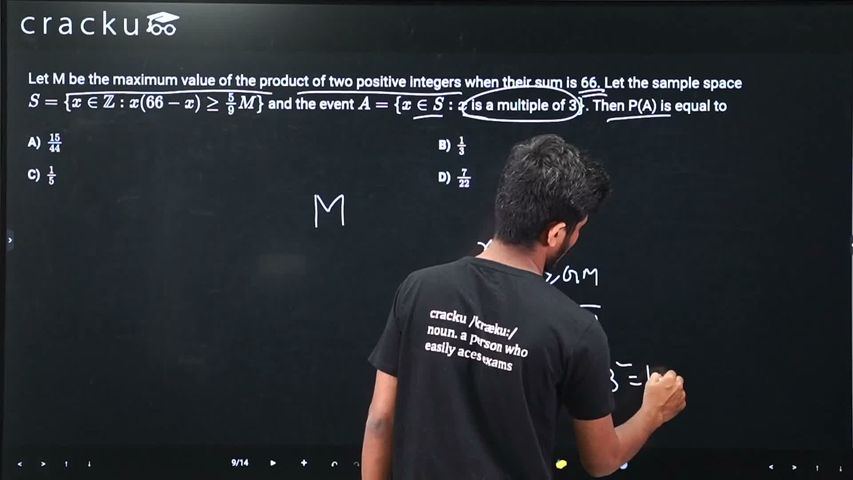 cracku
Let M be the maximum value of the product of two positive integers when their sum is 66. Let the sample space
S = {x ∈ ℤ : x(66 − x) ≥ 5/9 M} and the event A = {x ∈ S : x is a multiple of 3}. Then P(A) is equal to
A) 15/44
B) 1/3
C) 1/5
D) 7/22
M
≥ GM
cracku /kræku:/
noun. a person who
easily aces exams
9/14